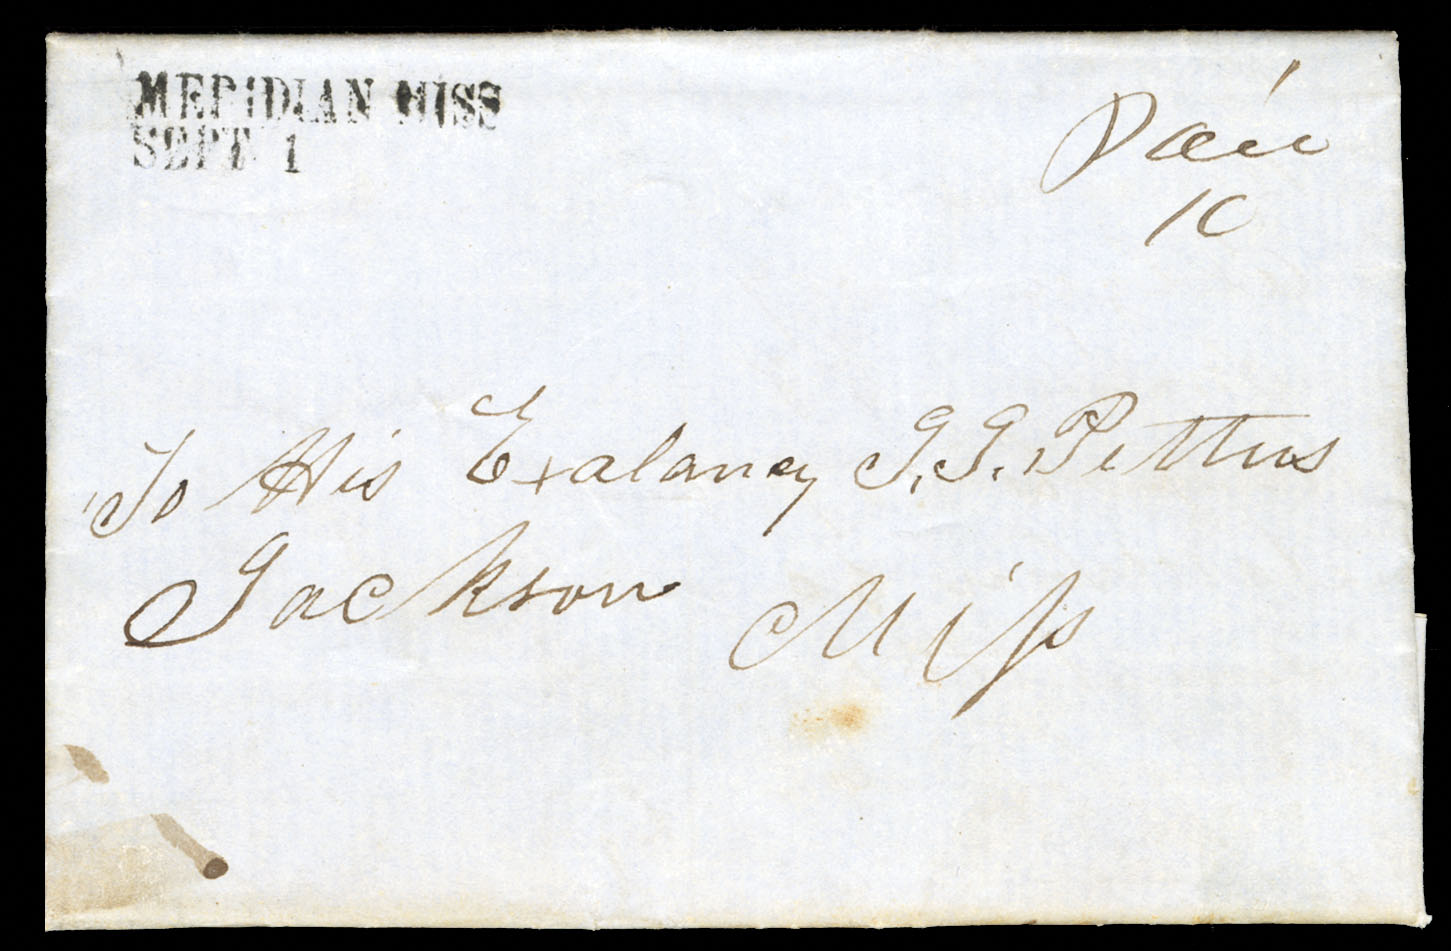 MERIDIAN MISS
SEPT 1
Paid
10
To His Exalancy J. J. Pettus
Jackson Miss